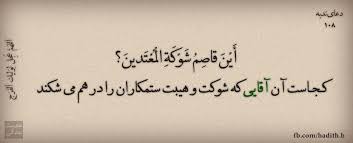 دعای ندبه
۱۰۸
أَيْنَ قاصِمُ شَوْكَةِ الْمُعْتَدينَ؟
کجاست آن آقایی که شوکت و هیبت ستمکاران را در هم می شکند
اللهم عجل لولیک الفرج
fb.com/hadith.h